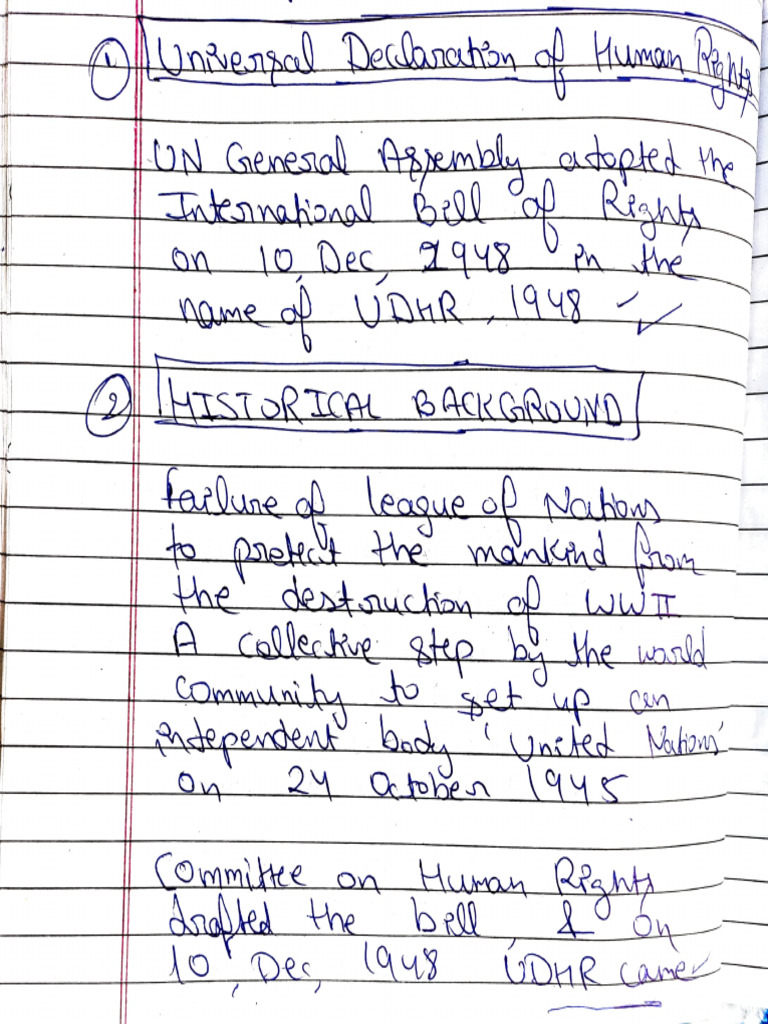 ① Universal Declaration of Human Rights
UN General Assembly adopted the
International Bill of Rights
on 10, Dec, 1948 in the
name of UDHR, 1948
② HISTORICAL BACKGROUND
failure of league of Nations
to protect the mankind from
the destruction of WWII
A collective step by the world
community to set up an
independent body 'United Nations'
on 24 October 1945
Committee on Human Rights
drafted the bill, & on
10, Dec, 1948 UDHR came